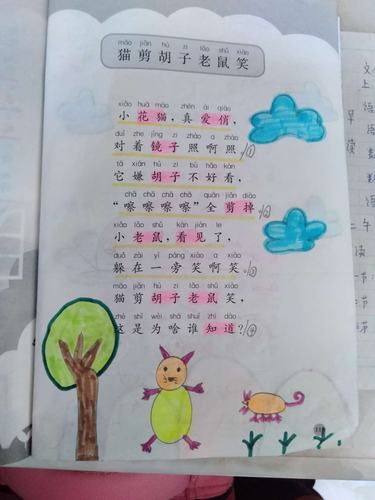 māo jiǎn hú zi lǎo shǔ xiào
猫剪胡子老鼠笑
xiǎo huā māo zhēn ài qiào
小花猫，真爱俏，
duì zhe jìng zi zhào a zhào
对着镜子照啊照①
tā xián hú zi bù hǎo kàn
它嫌胡子不好看，
chā chā chā chā quán jiǎn diào
“嚓嚓嚓嚓”全剪掉②
xiǎo lǎo shǔ kàn jiàn le
小老鼠，看见了，
duǒ zài yì páng xiào a xiào
躲在一旁笑啊笑。③
māo jiǎn hú zi lǎo shǔ xiào
猫剪胡子老鼠笑，
zhè shì wèi shá shuí zhī dào
这是为啥谁知道?④
早
读
二
午
读
一节
节